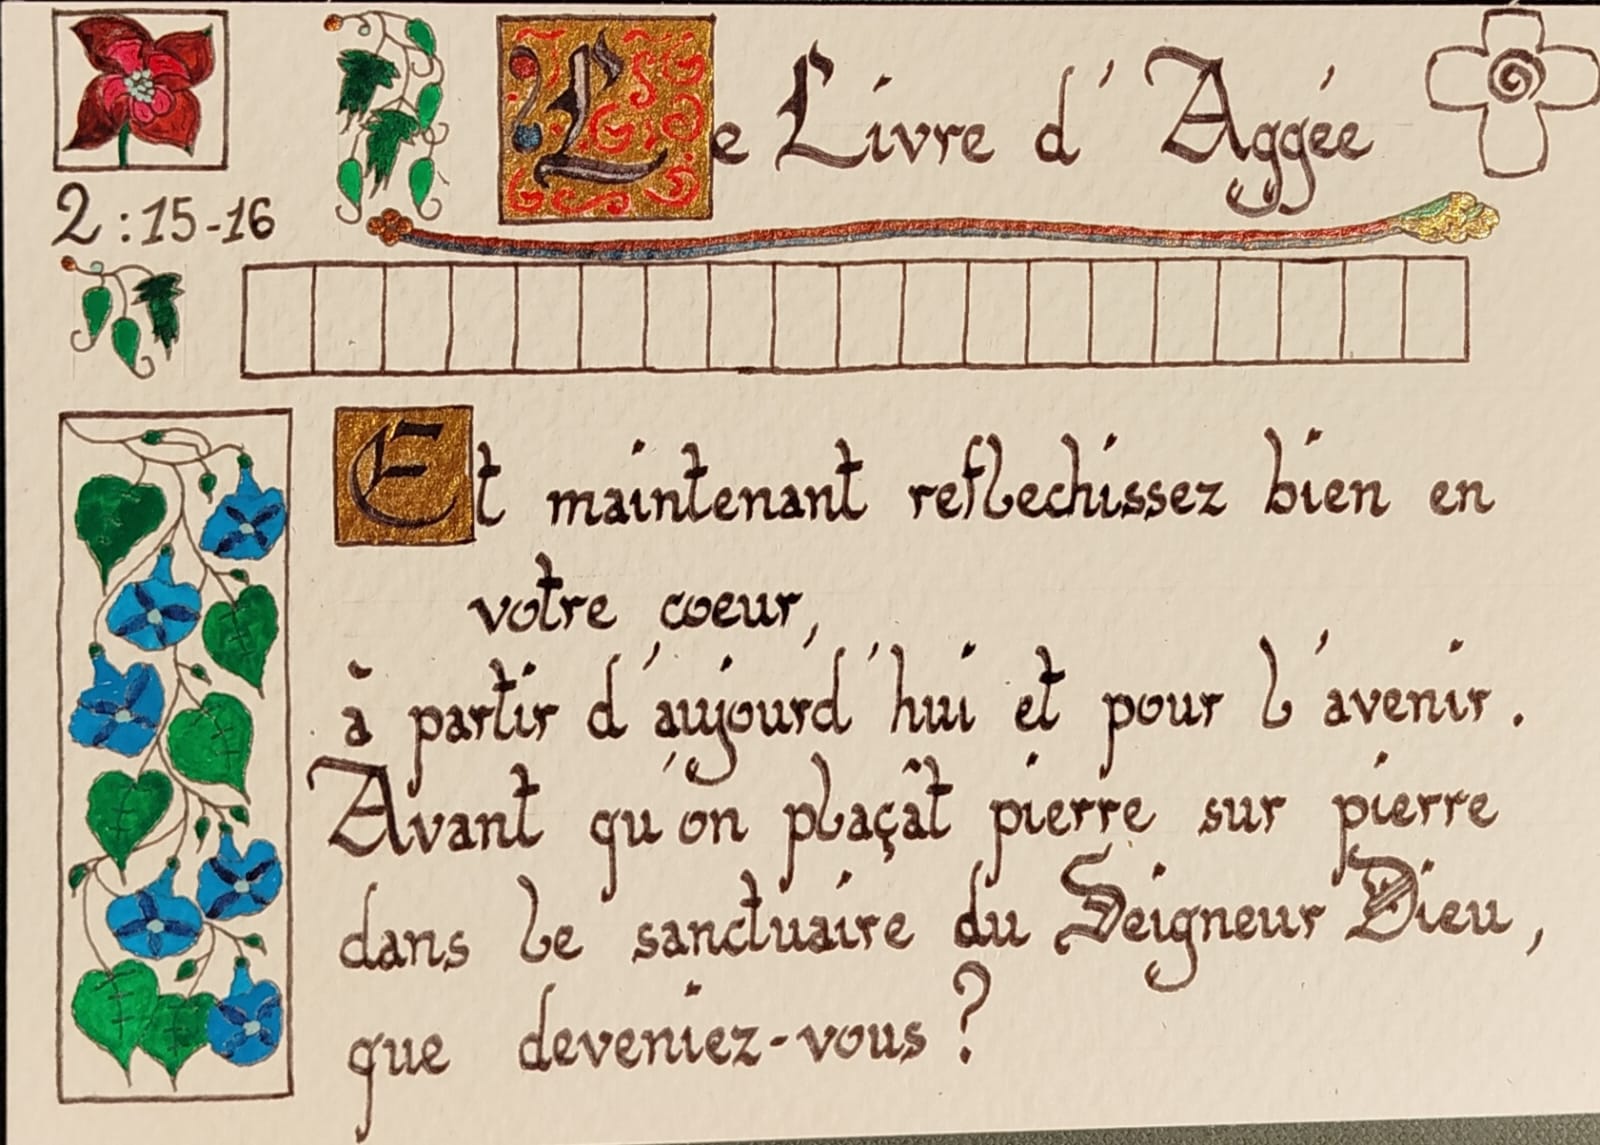 Le Livre d'Aggée
2:15-16
Et maintenant reflechissez bien en
votre coeur,
à partir d'aujourd'hui et pour l'avenir.
Avant qu'on plaçât pierre sur pierre
dans le sanctuaire du Seigneur Dieu,
que deveniez-vous ?